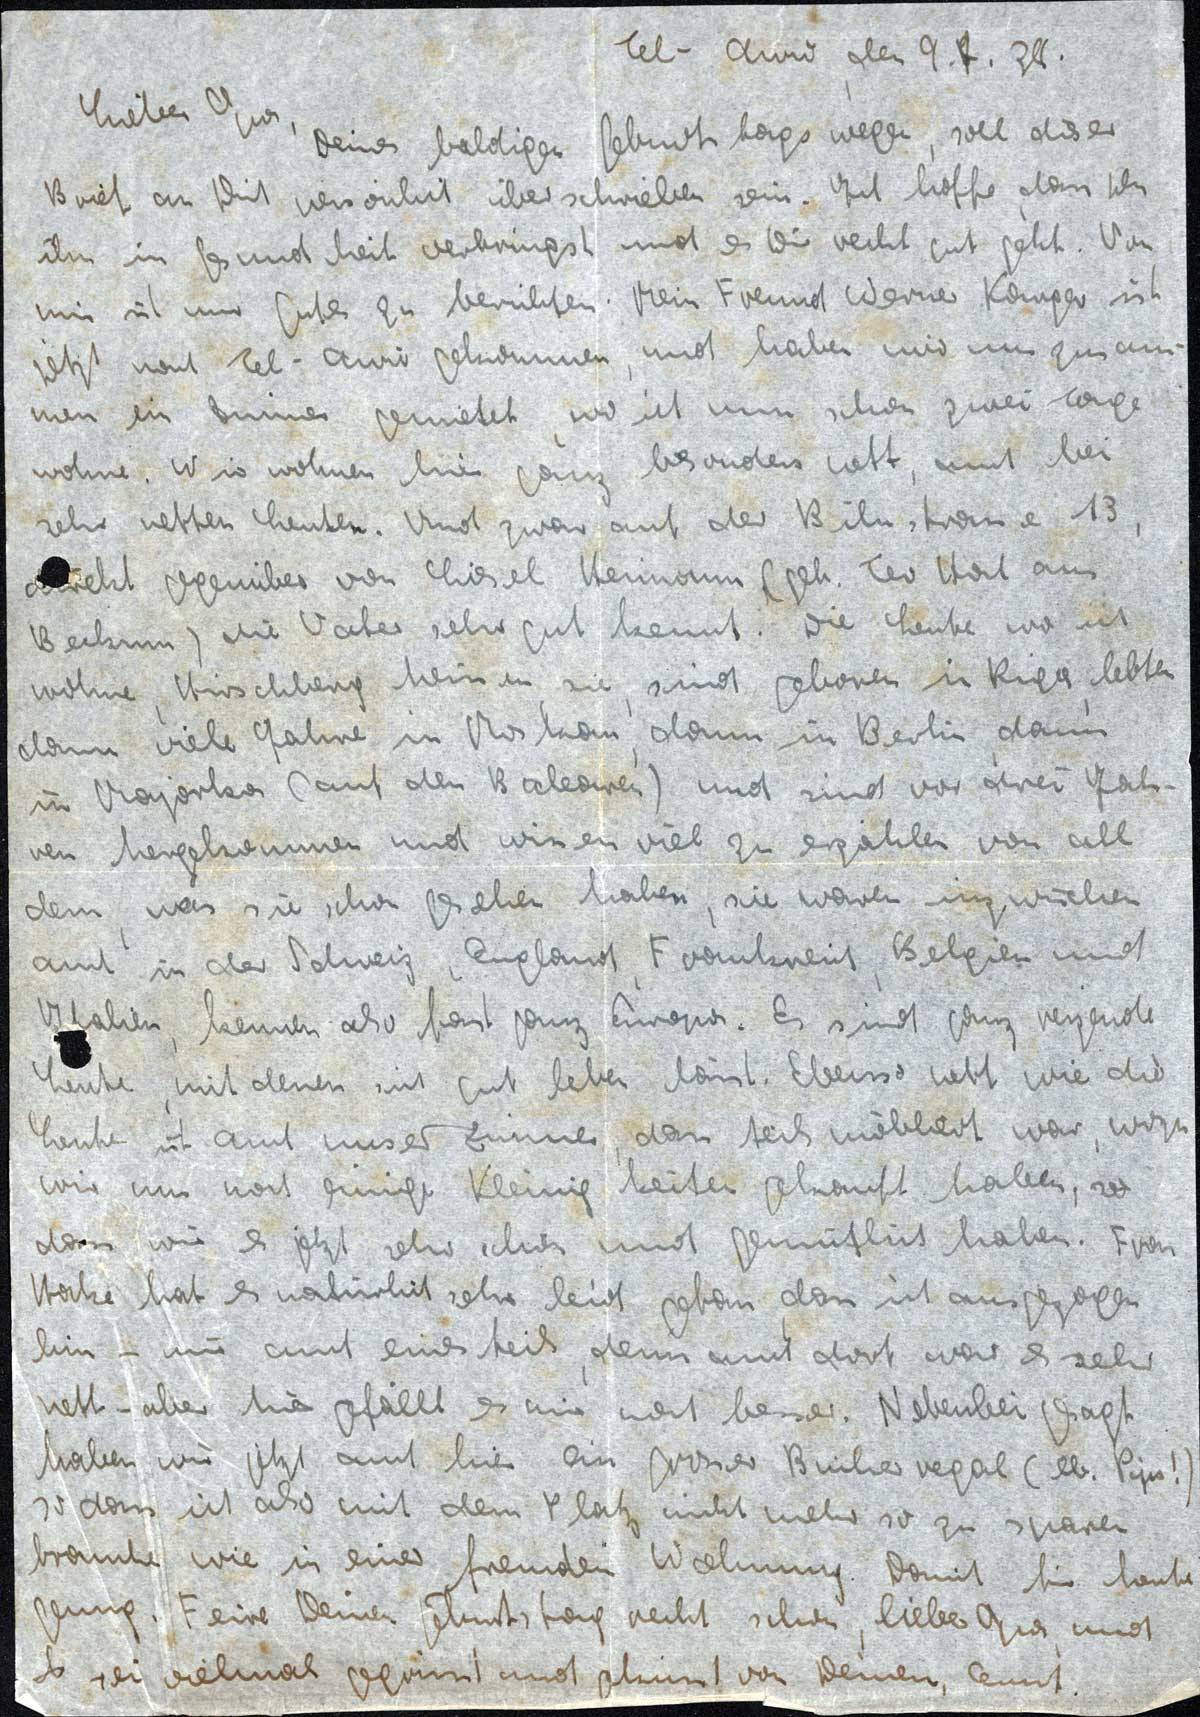 Tel- Awiw, den 9.1.38.
Lieber Opa,
Deines baldigen Geburtstags wegen, soll dieser
Brief an Dich persönlich überschrieben sein. Ich hoffe, dass Du
ihn in Gesundheit verbringst und es Dir recht gut geht. Von
mir ist nur Gutes zu berichten. Mein Freund Werner Kamper ist
jetzt nach Tel- Awiw gekommen, und haben wir uns zusam-
men ein Zimmer gemietet, wo ich nun schon zwei Tage
wohne. Wir wohnen hier ganz besonders nett, auch bei
sehr netten Leuten. Und zwar auf der Bilustrasse 13,
direkt gegenüber von Liesel Heimann (geb. Ter Horst aus
Beckum) die Vater sehr gut kennt. Die Leute wo ich
wohne, Hirschberg heissen sie, sind geboren in Riga, lebten
dann viele Jahre in Moskau, dann in Berlin, dann
in Majorka (auf den Balearen) und sind vor drei Jah-
ren hergekommen und wissen viel zu erzählen von all
dem, was sie schon gesehen haben, sie waren inzwischen
auch in der Schweiz, England, Frankreich, Belgien und
Italien, kennen also fast ganz Europa. Es sind ganz reizende
Leute, mit denen sich gut leben lässt. Ebenso nett wie die
Leute ist auch unser Zimmer, dass teils möbliert war, wozu
wir uns noch einige Kleinigkeiten gekauft haben, so
dass wir es jetzt sehr schön und gemütlich haben. Frau
Hake hat es natürlich sehr leid getan, dass ich ausgezogen
bin - mir auch einesteils, denn auch dort war es sehr
nett - aber hier gefällt es mir noch besser. Nebenbei gesagt
haben wir jetzt auch hier ein grosser Bücherregal (lb. Papa!)
so dass ich also mit dem Platz nicht mehr so zu sparen
brauche wie in einer fremden Wohnung. Damit für heute
genug. Feire Deinen Geburtstag recht schön, lieber Opa, und
sei vielmals gegrüsst und geküsst von Deinem, Ernst.